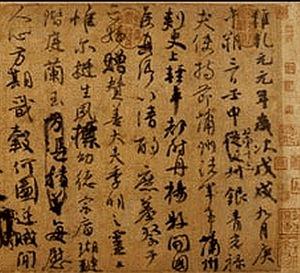 維乾元元年歲次戊戌九月庚
午朔三日壬申第十三叔銀青光祿
夫使持節蒲州諸軍事蒲州
刺史上輕車都尉丹楊縣開國
侯真卿以清酌庶羞祭于
亡姪贈贊善大夫季明之靈曰
惟爾挺生夙標幼德宗廟瑚璉
階庭蘭玉每慰
人心方期戩穀何圖逆賊閒